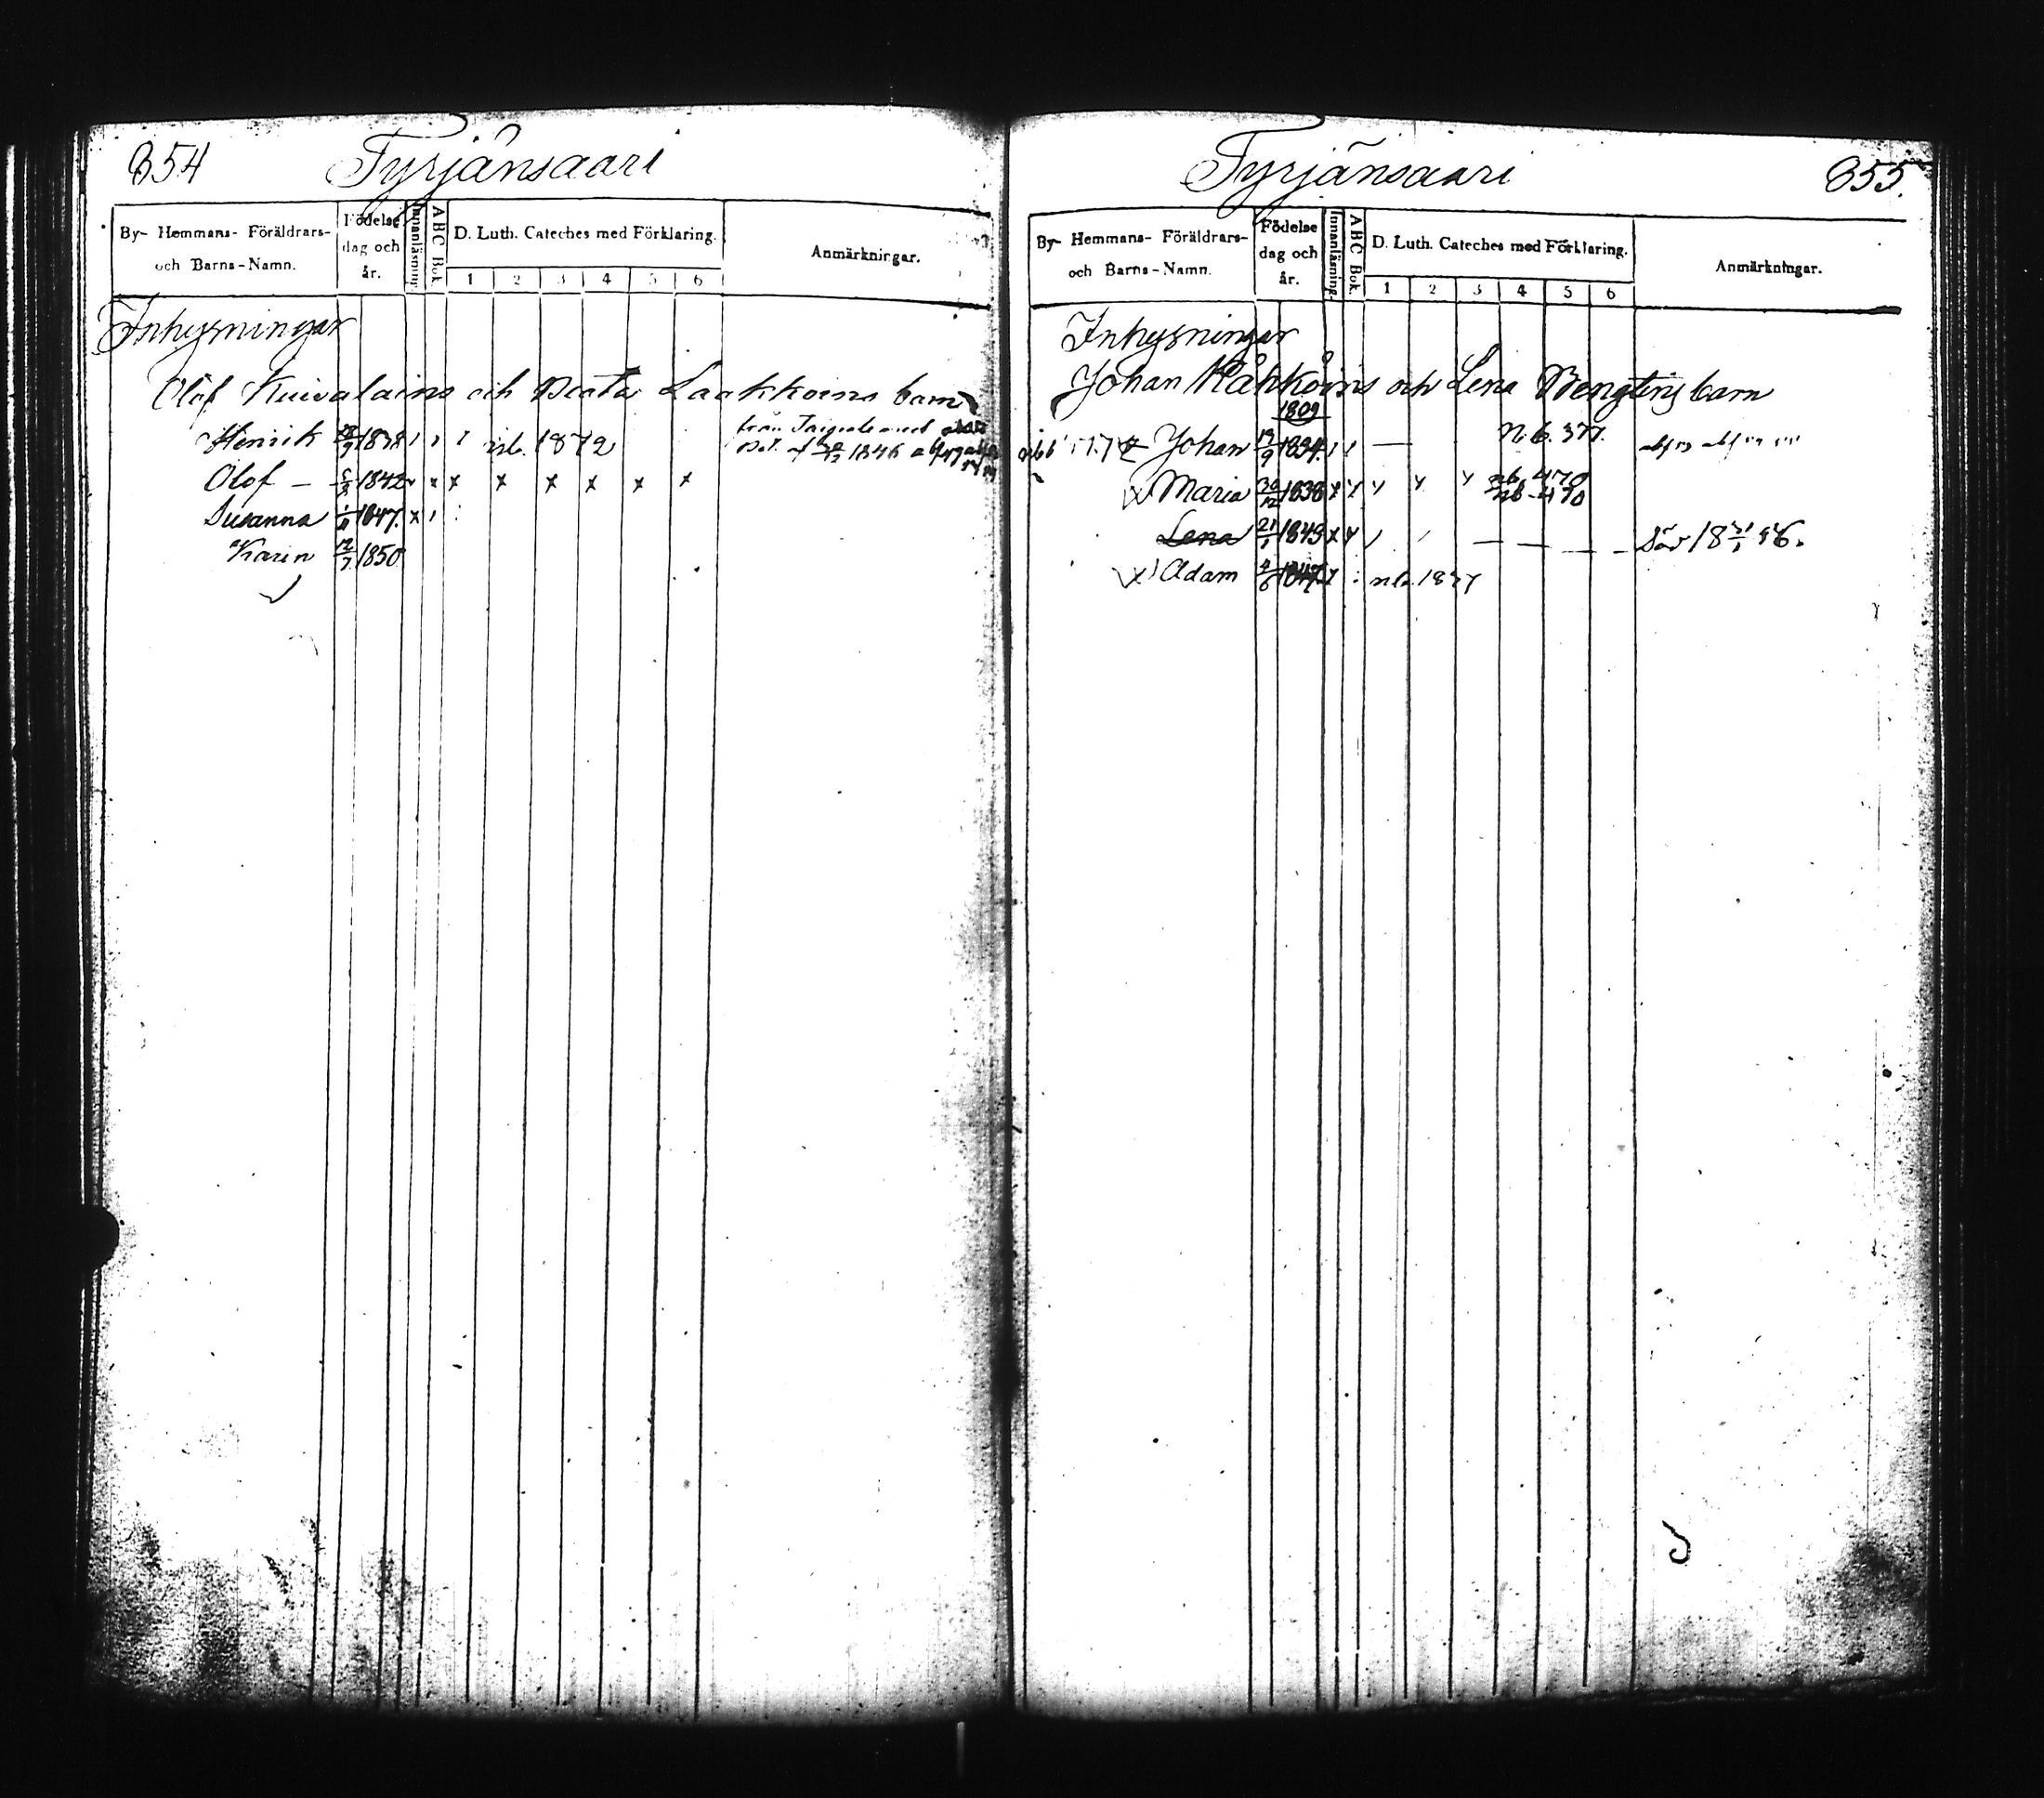 354 Tyrjänsaari
By- Hemmans- Föräldrars- och Barns-Namn. Födelse dag och år. Innanläsning. ABC Bok. D. Luth. Cateches med Förklaring. Anmärkningar.
1 2 3 4 5 6
Inhysningar
Olof Kuivalains och Beata Laakkoins barn
Henrik 1838 nb. 1872 från 1846
Olof – 1842 x x x x x x x
Susanna 1847. x
Karin 12/7 1850
Tyrjänsaari 355.
By- Hemmans- Föräldrars- och Barns-Namn. Födelse dag och år. Innanläsning. ABC Bok. D. Luth. Cateches med Förklaring. Anmärkningar.
1 2 3 4 5 6
Inhysningar
Johan Råhkoins och Lena Bengtings barn
1809
Johan 19/9 1834. — N.b. 377.
Maria 30/12 1838 nb. 470 nb. 470
Lena 21/1 1843 död 18 21/1 46.
Adam 4/6 nb. 1877